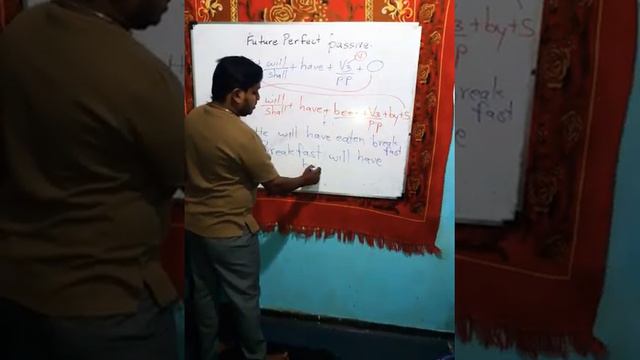 Future Perfect passive.
+ will/shall + have + V3/PP + O
will/shall + have + been + V3/PP + by + S
He will have eaten breakfast
Breakfast will have
b